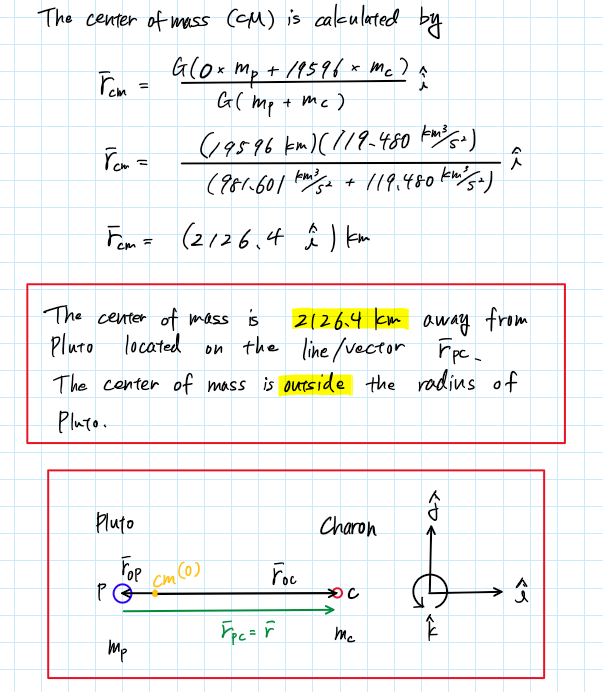 The center of mass (CM) is calculated by
r̄cm = G(0 × mp + 19596 × mc) / G(mp + mc) î
r̄cm = (19596 km)(119.480 km³/s²) / (981.601 km³/s² + 119.480 km³/s²) î
r̄cm = (2126.4 î) km
The center of mass is 2126.4 km away from
Pluto located on the line/vector r̄pc.
The center of mass is outside the radius of
Pluto.
Pluto Charon ĵ
r̄op cm(0) r̄oc
P C î
r̄pc = r̄ k̂
mp mc